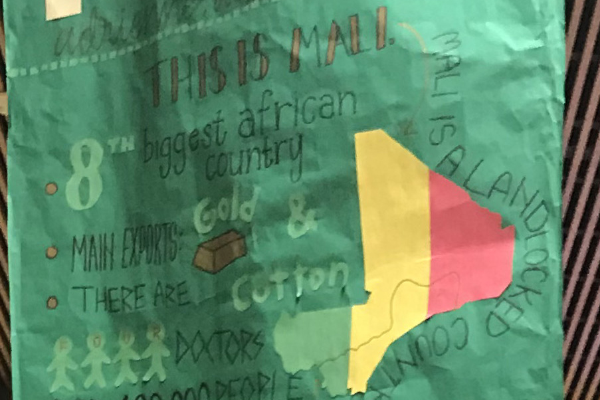 THIS IS MALI.
8TH biggest african country
Gold &
MAIN EXPORTS:
Cotton
THERE ARE
FOUR
DOCTORS
100,000 PEOPLE
MALI IS A LANDLOCKED COUNTRY